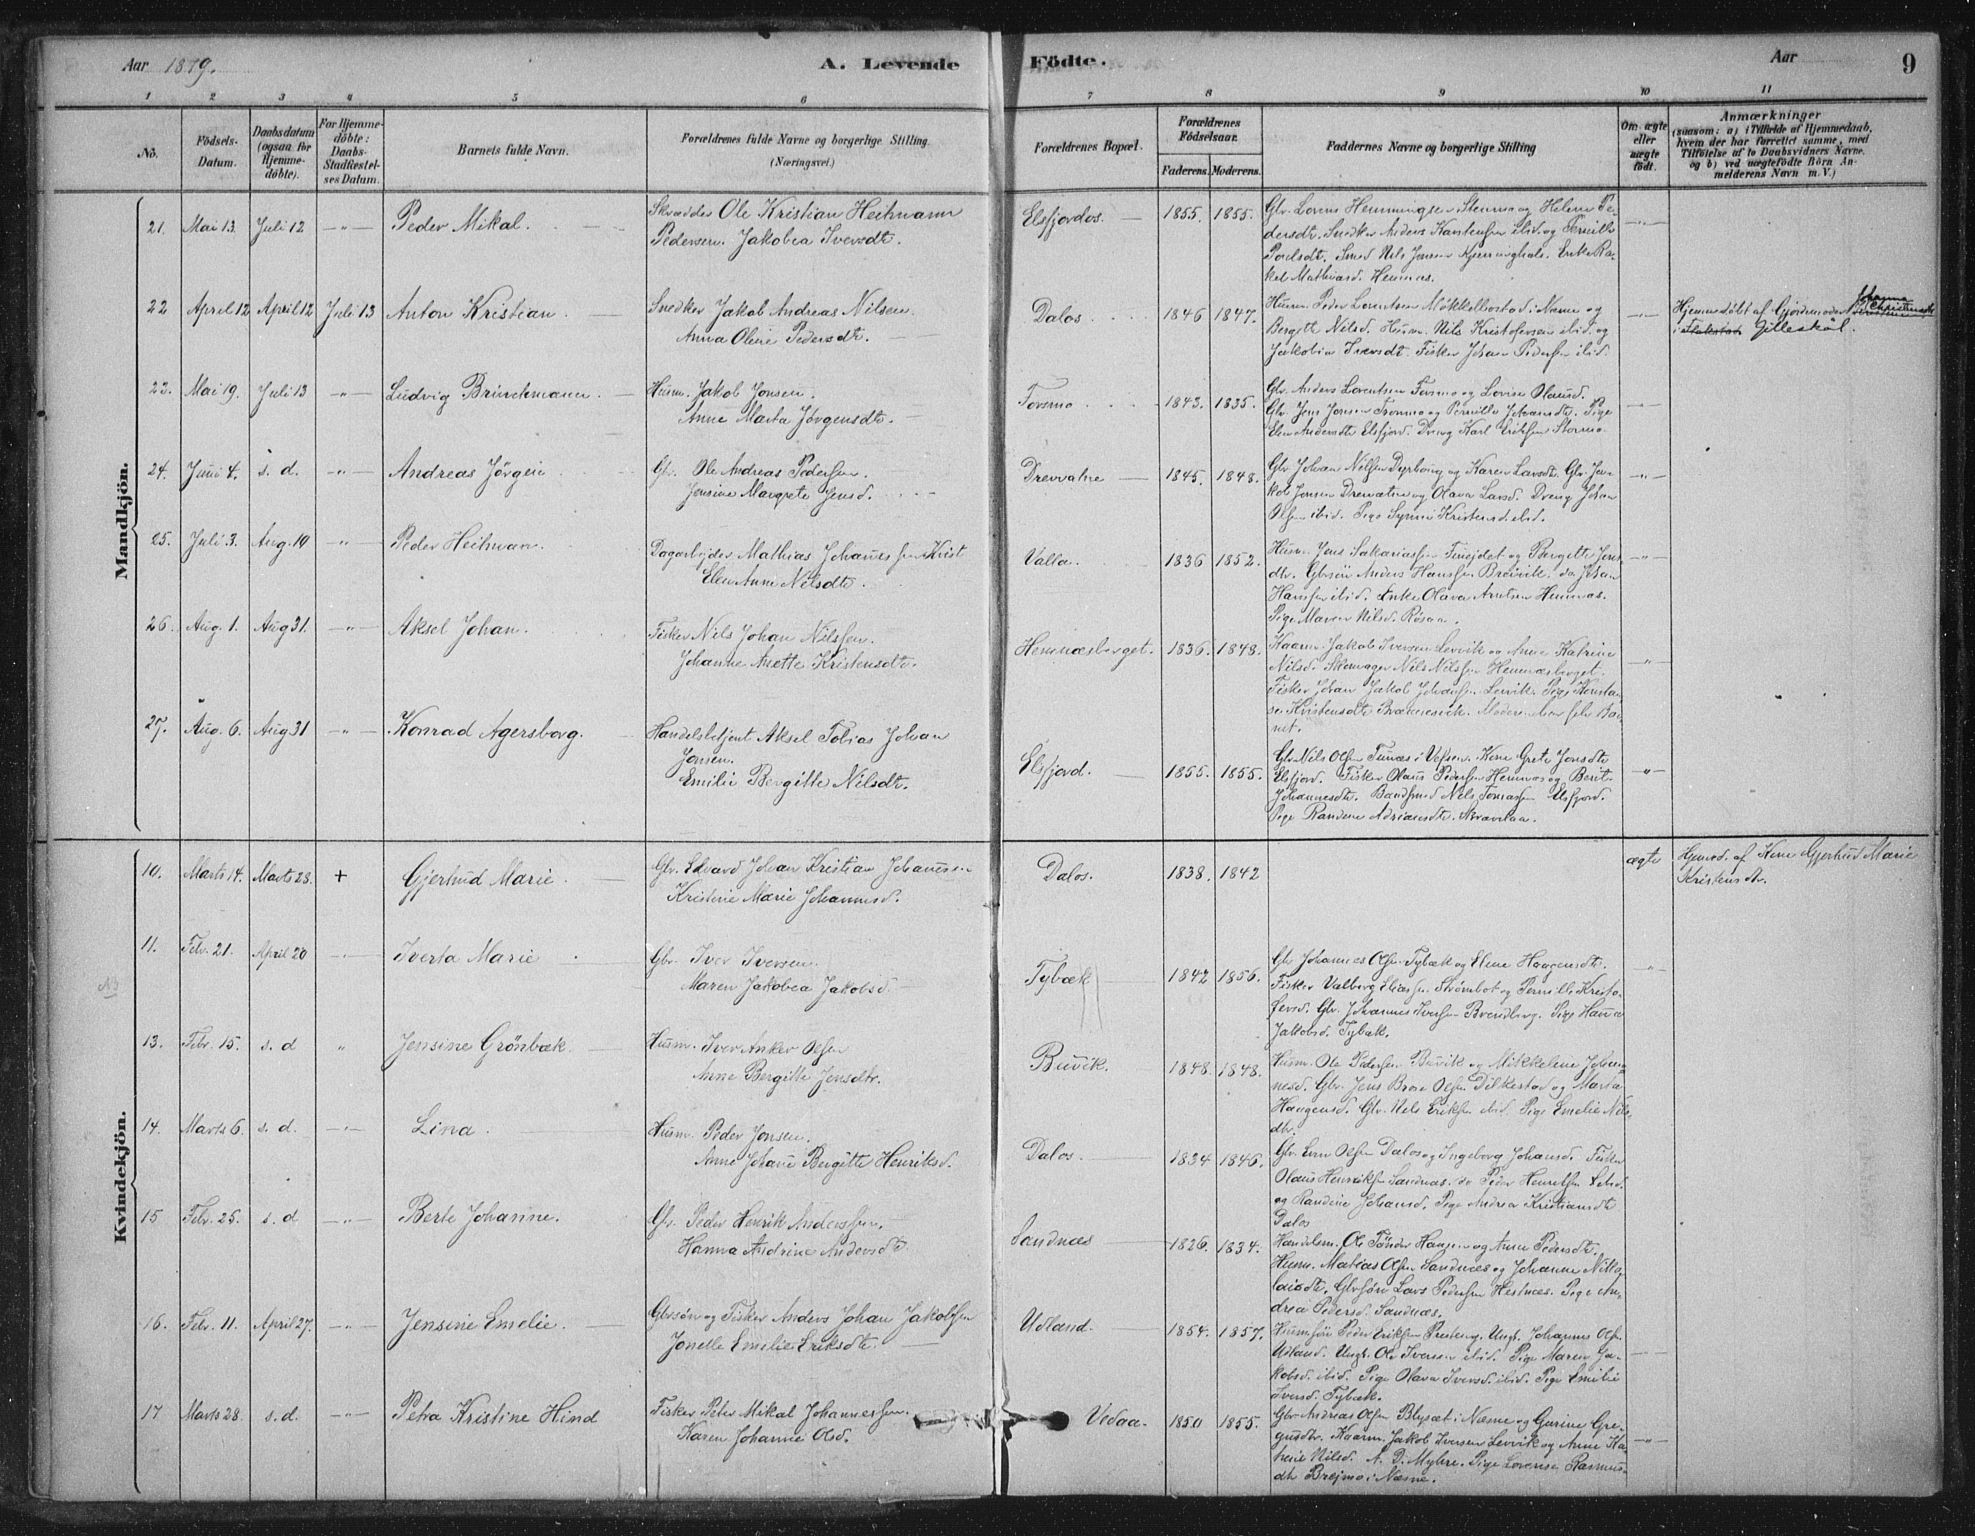 Aar 1879.
A. Levende Fødte.
Aar
9
1 2 3 4 5 6 7 8 9 10 11
No.
Födsels-
Datum.
Daabsdatum
(ogsaa for
Hjemme-
döbte).
For Hjemme-
döbte:
Daabs-
Stadfæstel-
ses Datum.
Barnets fulde Navn.
Forældrenes fulde Navne og borgerlige Stilling.
(Næringsvei.)
Forældrenes Bopæl.
Forældrenes
Födselsaar.
Faderens. Moderens.
Faddernes Navne og borgerlige Stilling
Om ægte
eller
uægte
födt.
Anmærkninger
(saasom: a) i Tilfælde af Hjemmedaab,
hvem der har forrettet samme, med
Tilföielse af to Daabsvidners Navne,
og b) ved uægtefödte Börn An-
melderens Navn m. V.)
Mandkjön.
21. Mai 13. Juli 12 —„— Peder Mikal. Skrædder Ole Kristian Heitmann
Pedersen. Jakobea Iversdt.
Elsfjordos. 1855. 1855. Gbr. Lorens Hemmingsen Stenmo og Helene Pe-
dersdt. Snedker Anders Karstensen ibid. og Pernille
Poelsdt. Smed Nils Jensen Kjerringhals. Enke Ra-
kel Mathiasd. Hemnæs.
22 April 12 April 12 Juli 13 Anton Kristian Snedker Jakob Andreas Nilsen
Anna Oline Pedersdt.
Dalos. 1846 1847. Husm. Peder Lorentsen Mökkelbostad i Næsne og
Bergitte Nilsd. Husm. Nils Kristofersen ibid. og
Jakobia Iversdt. Fisker Johan Pedersen ibid.
Hjemmedøbt af Gjordemoder Johanna Christensdt
i Gilleskål.
23. Mai 19. Juli 13 —„— Ludvig Brinchmann. Husm. Jakob Jonsen.
Anne Marta Jørgensdt.
Forsmo 1843. 1835. Gbr. Anders Lorentsen Forsmo og Lovise Olausd.
Gbr. Jens Jonsen Fronmo og Pernille Johansdt. Pige
Elen Andersdt Elsfjord. Dreng Karl Eriksen Stormo.
24. Juni 4. s. d. —„— Andreas Jørgen Gbr. Ole Andreas Pedersen.
Jensine Margrete Jensd.
Drevvatne 1845. 1848. Gbr. Johan Nilsen Dyrhaug og Karen Larsdt. Gbr. Ja-
kob Jonsen Drevvatne og Olava Larsd. Dreng Johan
Olsen ibid. Pige Synnø Kristensd. ibid.
25. Juli 3. Aug. 10 —„— Peder Heitman. Dagarbejder Mathias Johannessen Krist
Elen Anne Nilsdt.
Valla. 1836 1852. Husm. Jens Sakariassen Finejdet og Bergitte Jens
dtr. Gbrsön Anders Hanssen Brovik. do Johan
Hanssen ibid. Enke Olava Arntsen Hemnæs.
Pige Maren Nilsd. Røsaa.
26. Aug. 1. Aug 31. —„— Aksel Johan. Fisker Nils Johan Nilssen.
Johanne Anette Kristensdt.
Hemnæsberget. 1836. 1848. Kaarm. Jakob Iversen Levvik og Anne Katrine
Nilsd. Skomager Nils Nilssen Hemnæsberget.
Fisker Johan Jakob Johansen Levvik. Pige Konstan-
se Kristensdt Brænnesvik. Moderen bar selv Bar-
net.
27. Aug. 6. Aug 31 —„— Konrad Agersborg. Handelsbetjent Aksel Tobias Johan
Jonsen.
Emilie Bergitte Nilsdt.
Elsfjord. 1855. 1855. Gbr Nils Olsen Tunæs i Vefsen. Kone Grete Jonsdt
Elsfjord. Fisker Olaus Pedersen Hemnæs og Berit
Johannesdt. Baadsmd Nils Tomassen Elsfjord.
Pige Randine Adriansdt. Bravelaa.
Kvindekjön.
10. Marts 14. Marts 23. + Gjertrud Marie Gbr. Edvard Johan Kristian Johannes.
Kristine Marie Johannesd.
Dalos. 1838. 1842 ægte Hjemd. af Kone Gjertrud Marie
Kristensdtr.
11. Febr. 21. April 20 —„— Iverta Marie Gbr. Iver Iversen.
Maren Jakobea Jakobsd.
Tybæk 1842 1856. Gbr Johannes Olsen Tybæk og Elene Haagensdt.
Fisker Valberg Eliassen Strømbot og Pernille Kristo-
fersd. Gbr. Johannes Iversen Brendberg. Pige Hanna
Jakobsd. Tybæk.
13. Febr. 15. s. d „ Jensine Grönbæk. Husm. Iver Anker Olsen
Anne Bergitte Jensdtr.
Buvik. 1848. 1848. Husm. Ole Pedersen Buvik og Mikkeline Johan-
nesd. Gbr. Jens Brose Olsen Dilkestad og Marta
Haagensd. Gbr. Nils Eriksen ibid. Pige Emelie Nils
dtr.
14. Marts 6. s. d. —„— Lina. Husm. Peder Jonsen.
Anne Johanne Bergitte Henriksd.
Dalos. 1834 1846. Gbr. Even Olsen Dalos og Ingeborg Johansd. Fisker
Olaus Henriksen Sandnæs. do Peder Henriksen ibid.
og Randine Johansd. Pige Andrea Kristiansdt
Dalos
15 Febr. 25. s. d —„— Berte Johanne. Gbr. Peder Henrik Anderssen.
Hanna Andrine Andersdt.
Sandnæs 1826. 1834. Handelsm. Ole Tønder Haagen og Anne Pedersdt.
Husm. Matias Olsen Sandnæs og Johanne Niko-
laisdt. Gbrsön Lars Pedersen Hestnæs. Pige An-
drea Pedersd. Sandnæs.
16. Febr. 11. April 27. —„— Jensine Emelie. Gbrsøn og Fisker Anders Johan Jakobsen
Jonelle Emelie Eriksdt.
Udland. 1854. 1857. Husmsøn Peder Eriksen Presteng. Ungk. Johannes Olsen
Udland. Ungk. Ole Iversen ibid. Pige Maren Ja-
kobsd. ibid. Pige Olava Iversd. ibid. Pige Emilie
Iversd. Tybæk.
17 Marts 28. s. d. —„— Petra Kristine Hind Fisker Peter Mikal Johannessen.
Karen Johanne Olsd.
Vedaa. 1850 1855. Gbr Andreas Olsen Blysæt i Næsne og Gurine Gre-
gusdtr. Kaarm. Jakob Iversen Levvik og Anne Ka-
trine Nilsd. A. D. Myhre. Pige Lorense Rasmus-
dt Brejmo i Næsne.